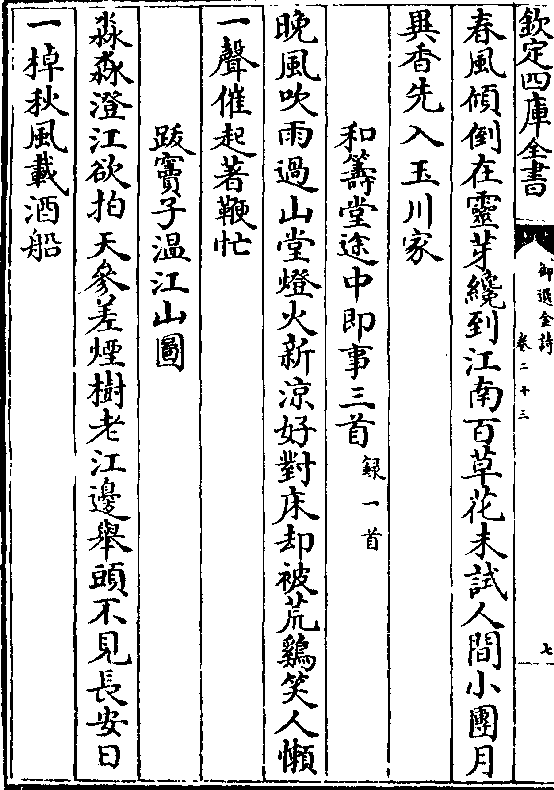 欽定四庫全書
御選金詩
卷二十三
七
春風傾倒在靈芽纔到江南百草花未試人間小團月
異香先入玉川家
和籌堂途中即事三首錄一首
晚風吹雨過山堂燈火新涼好對床却被荒鷄笑人懶
一聲催起著鞭忙
跋竇子温江山圖
淼淼澄江欲拍天參差煙樹老江邊舉頭不見長安日
一棹秋風載酒船